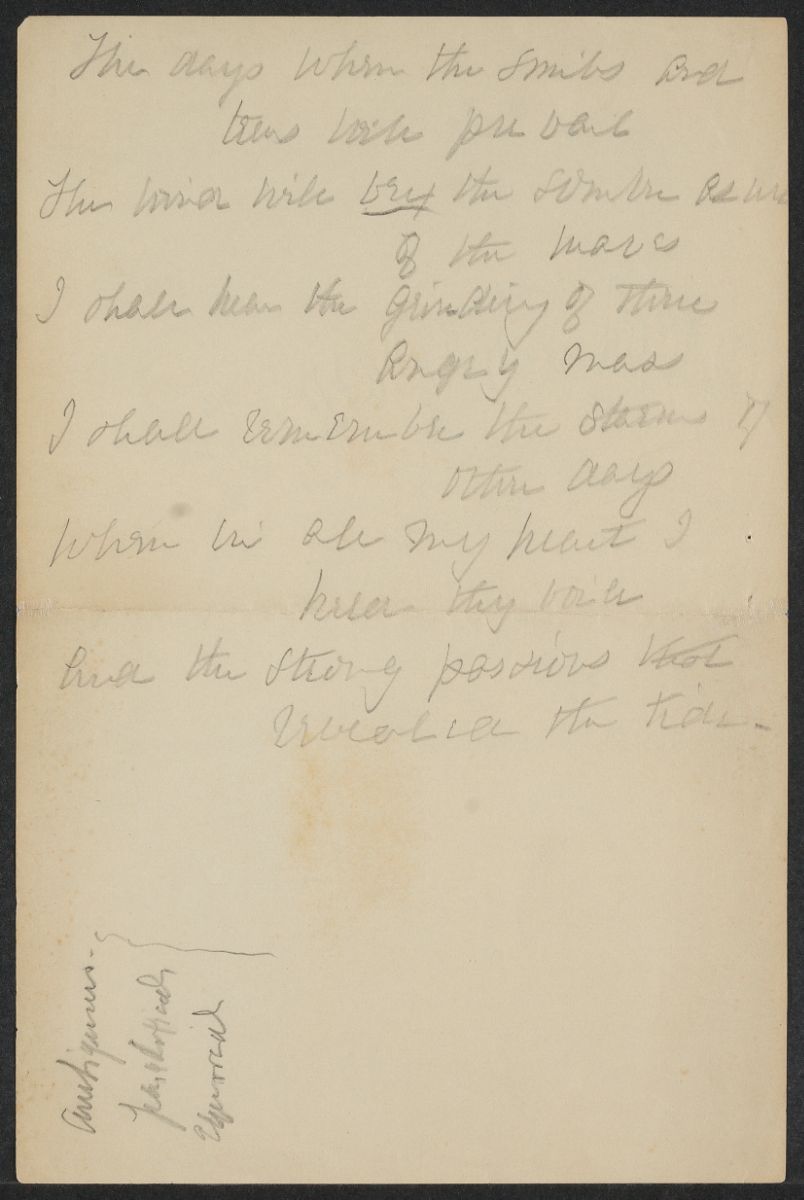 The days when the smiles and
tears will prevail
The wind will vex the sombre azure
of the waves
I shall hear the grinding of those
angry
I shall remember the storms of
other days
When in all my heart I
held thy voice
And the strong passions that
revealed the tide -
Ambiguous -
paradoxical
Equivocal